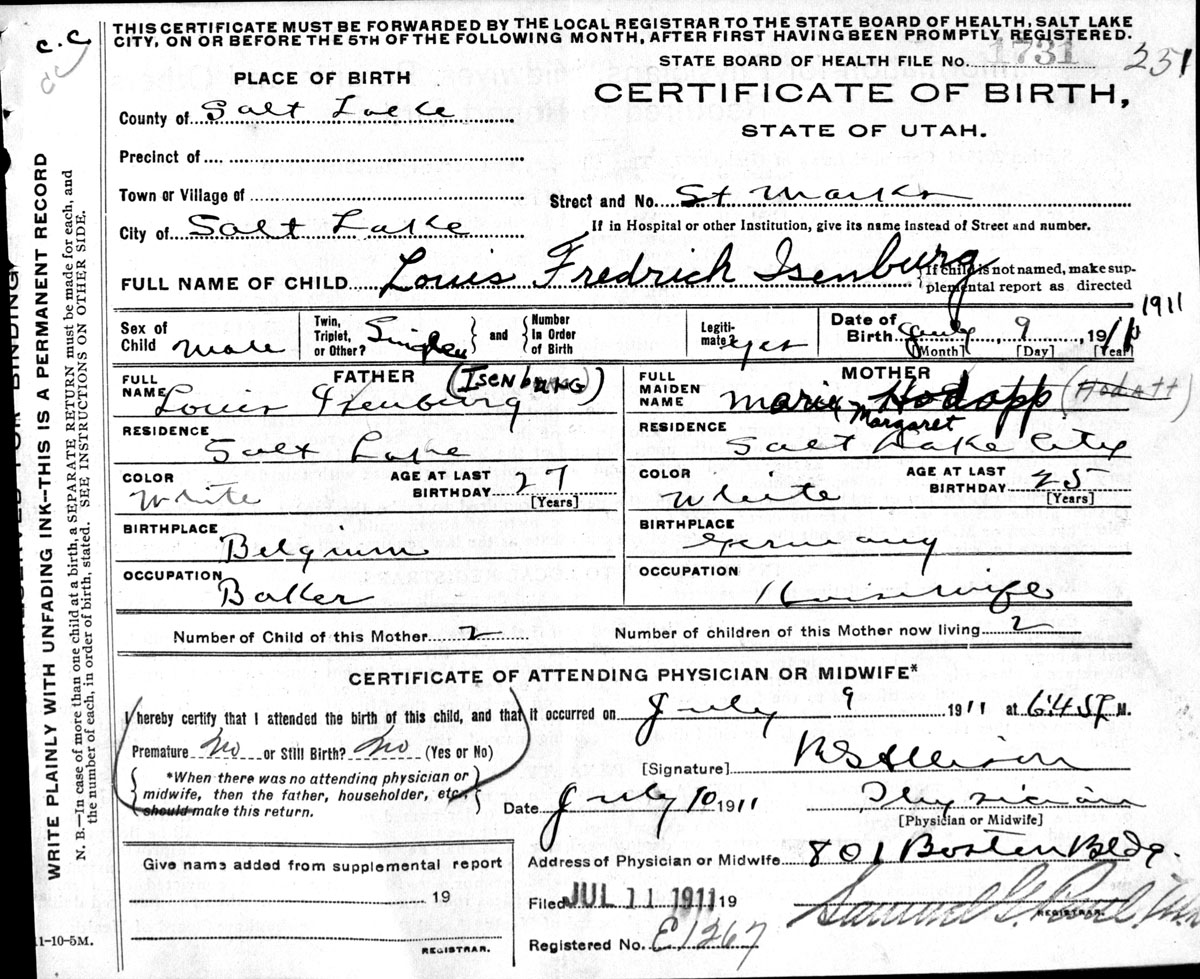 THIS CERTIFICATE MUST BE FORWARDED BY THE LOCAL REGISTRAR TO THE STATE BOARD OF HEALTH, SALT LAKE
CITY, ON OR BEFORE THE 5TH OF THE FOLLOWING MONTH, AFTER FIRST HAVING BEEN PROMPTLY REGISTERED.
C.C
STATE BOARD OF HEALTH FILE No. 1731 251
PLACE OF BIRTH
CERTIFICATE OF BIRTH,
STATE OF UTAH.
County of Salt Lake
Precinct of
Town or Village of
Street and No. St Marks
City of Salt Lake
If in Hospital or other Institution, give its name instead of Street and number.
FULL NAME OF CHILD Louis Fredrich Isenburg
If child is not named, make sup-
plemental report as directed
Sex of Child Male
Twin, Triplet, or Other? Single and Number In Order of Birth
Legiti-mate? Yes
Date of Birth July 9, 1911 1911
[Month] [Day] [Year]
FATHER
FULL NAME Louis Isenburg (ISENBURG)
MOTHER
FULL MAIDEN NAME Marie Margaret Hodapp (Hodatt)
RESIDENCE Salt Lake
RESIDENCE Salt Lake City
COLOR White AGE AT LAST BIRTHDAY 27 [Years]
COLOR White AGE AT LAST BIRTHDAY 25 [Years]
BIRTHPLACE Belgium
BIRTHPLACE Germany
OCCUPATION Baker
OCCUPATION Housewife
Number of Child of this Mother 2 Number of children of this Mother now living 2
CERTIFICATE OF ATTENDING PHYSICIAN OR MIDWIFE*
I hereby certify that I attended the birth of this child, and that it occurred on July 9 1911 at 6.45 P M.
Premature No or Still Birth? No (Yes or No)
[Signature] Allison
*When there was no attending physician or
midwife, then the father, householder, etc.,
should make this return.
Date July 10 1911 Physician
[Physician or Midwife]
Give name added from supplemental report
19
REGISTRAR.
Address of Physician or Midwife 801 Boston Bldg.
Filed JUL 11 1911 19
Samuel G. Paul
REGISTRAR.
Registered No. E1267
11-10-5M.
WRITE PLAINLY WITH UNFADING INK—THIS IS A PERMANENT RECORD
N. B.—In case of more than one child at a birth, a SEPARATE RETURN must be made for each, and
the number of each, in order of birth, stated. SEE INSTRUCTIONS ON OTHER SIDE.